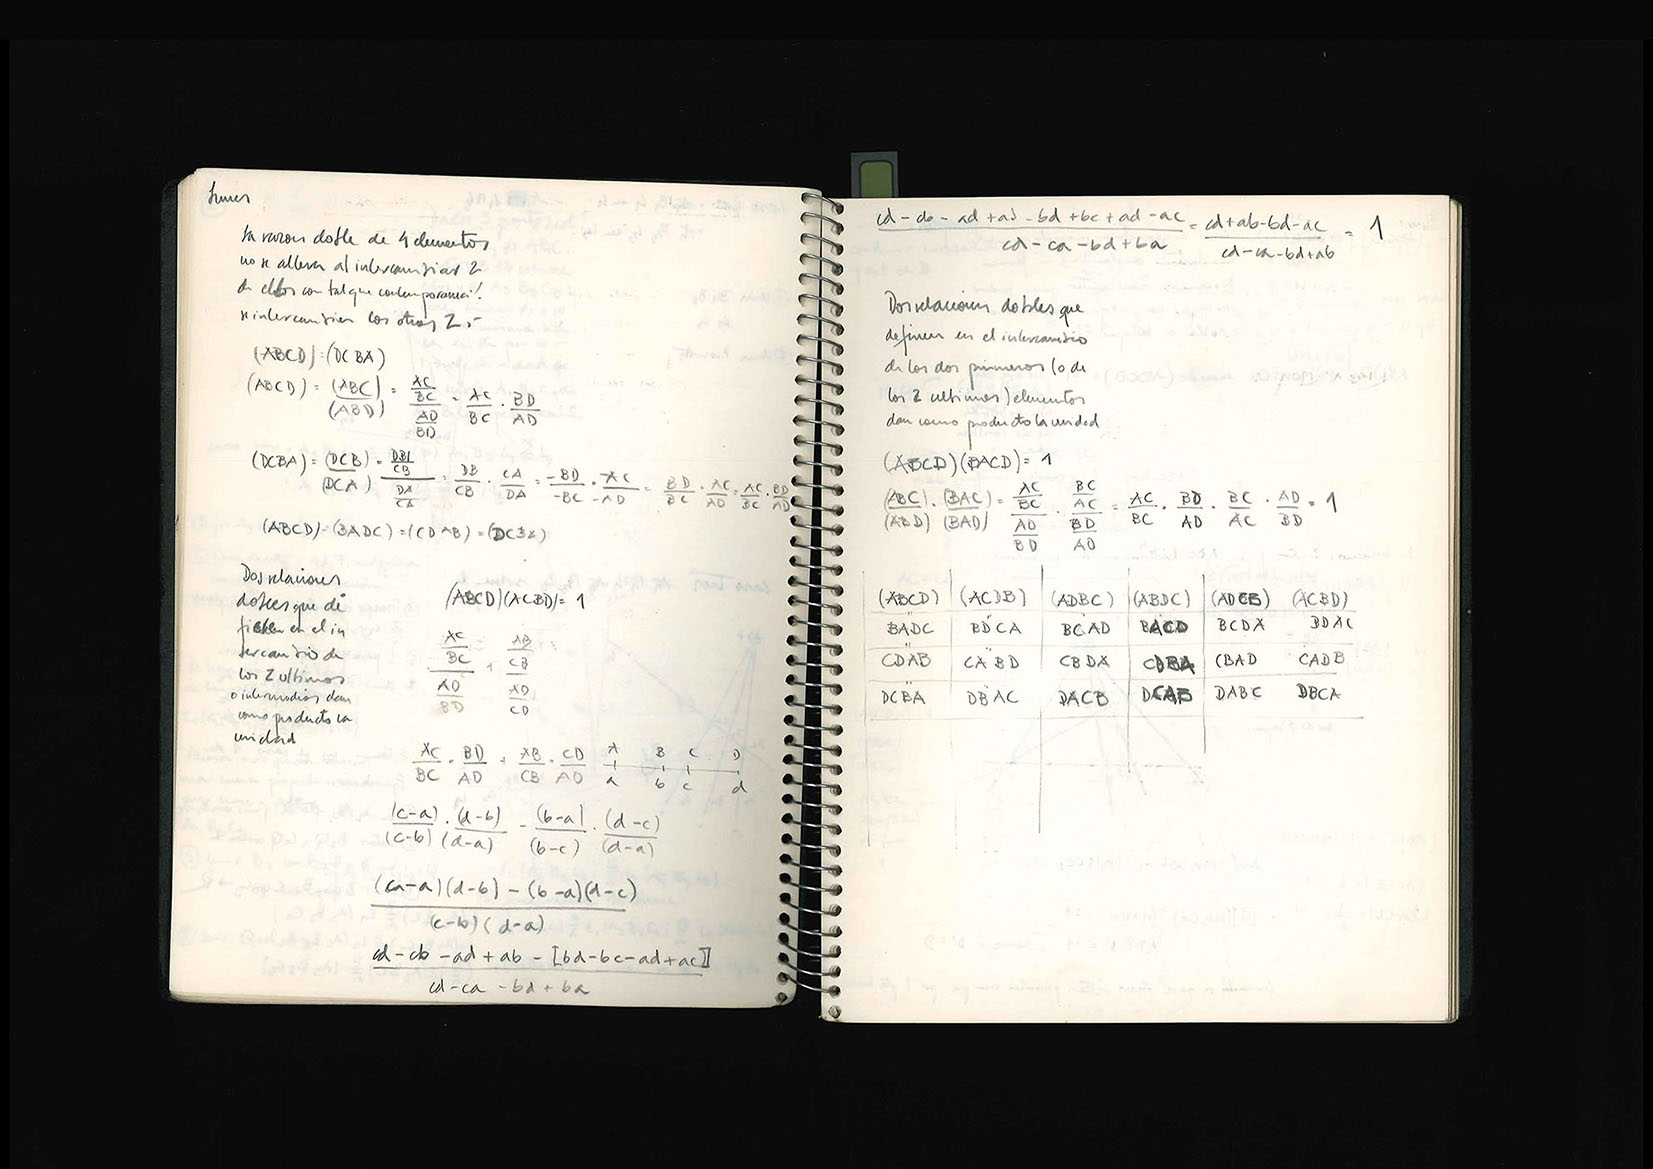 Lunes
La razon doble de 4 elementos
no se altera al intercambiar 2
de ellos con tal que contemporaneam!
se intercambien los otros 2.-
(ABCD)=(DCBA)
(ABCD) = (ABC)/(ABD) = AC/BC / AD/BD = AC/BC . BD/AD
(DCBA) = (DCB)/(DCA) = DB/CB / DA/CA = DB/CB . CA/DA = -BD/-BC . -AC/-AD = BD/BC . AC/AD = AC/BC . BD/AD
(ABCD)=(BADC)=(CDAB)=(DCBA)
Dos relaciones
dobles que di
fieren en el in
tercambio de
los 2 ultimos
o intermedios dan
como producto la
unidad
(ABCD)(ACBD)=1
AC/BC / AD/BD + AB/CB / AD/CD
AC/BC . BD/AD + AB/CB . CD/AD
A B C D
a b c d
(c-a)/(c-b) . (d-b)/(d-a) - (b-a)/(b-c) . (d-c)/(d-a)
(ca-a)(d-b) - (b-a)(d-c)
(c-b)(d-a)
cd-cb-ad+ab-[bd-bc-ad+ac]
cd-ca-bd+ba
cd-cb-ad+ab-bd+bc+ad-ac / cd-ca-bd+ba = cd+ab-bd-ac / cd-ca-bd+ab = 1
Dos relaciones dobles que
defieren en el intercambio
de los dos primeros (o de
los 2 ultimos) elementos
dan como producto la unidad
(ABCD)(BACD)=1
(ABC)/(ABD) . (BAC)/(BAD) = AC/BC / AD/BD . BC/AC / BD/AD = AC/BC . BD/AD . BC/AC . AD/BD = 1
(ABCD) (ACDB) (ADBC) (ABDC) (ADCB) (ACBD)
BADC BDCA BCAD BACD BCDA BDAC
CDAB CABD CBDA CDBA CBAD CADB
DCBA DBAC DACB DCAB DABC DBCA